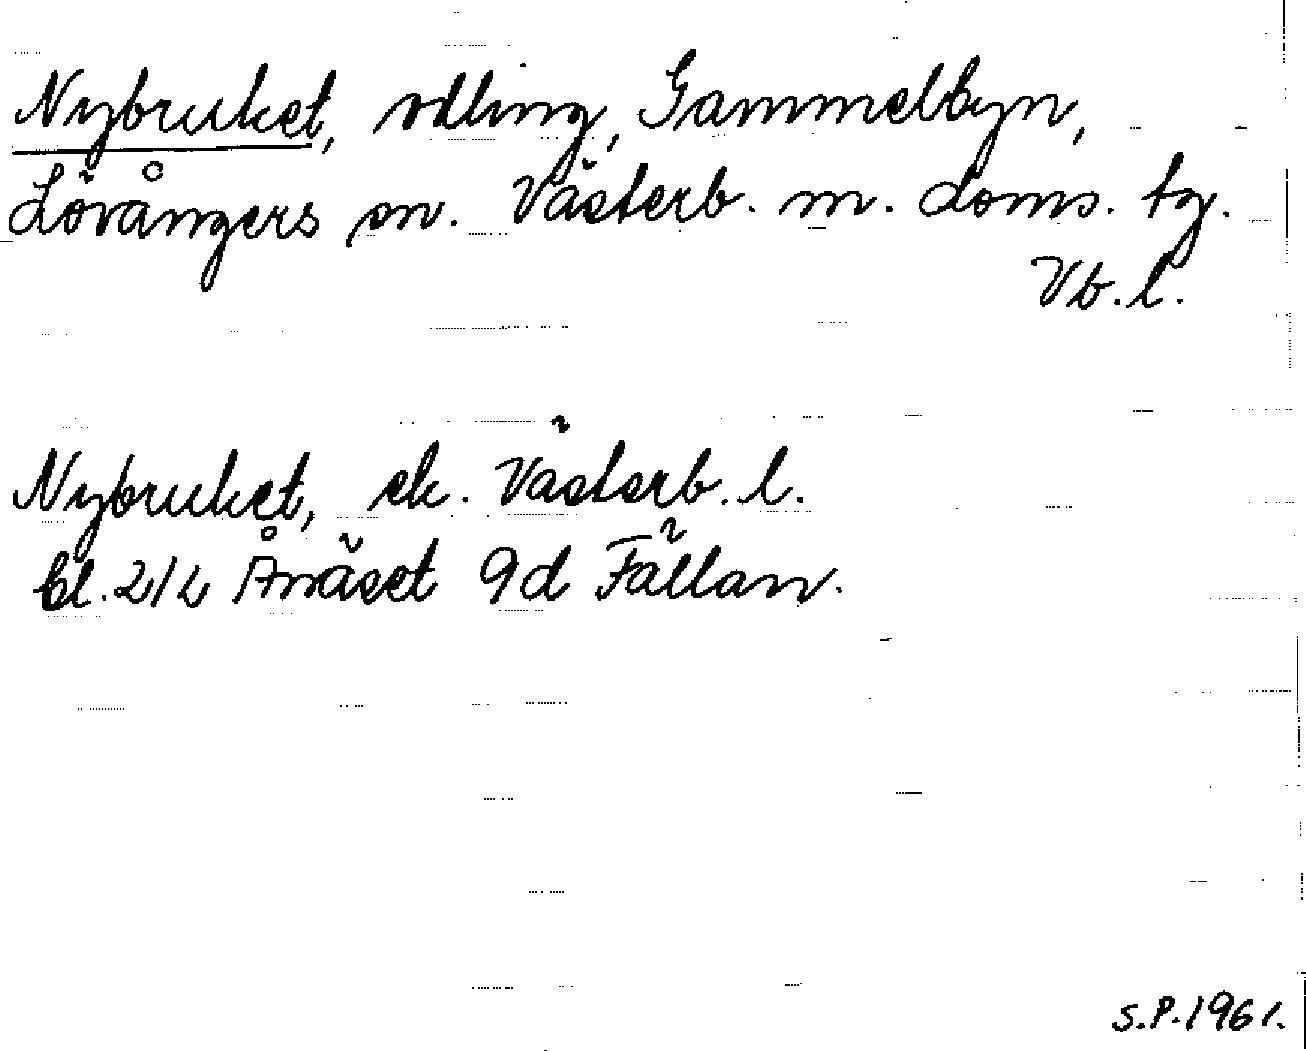 Nybruket, odling, Gammelbyn,
Lövångers sn. Västerb. m. doms. tg.
Vb. l.
Nybruket, ek. Västerb. l.
bl. 2/2 Ånäset 9d Fällan.
S.P. 1961.